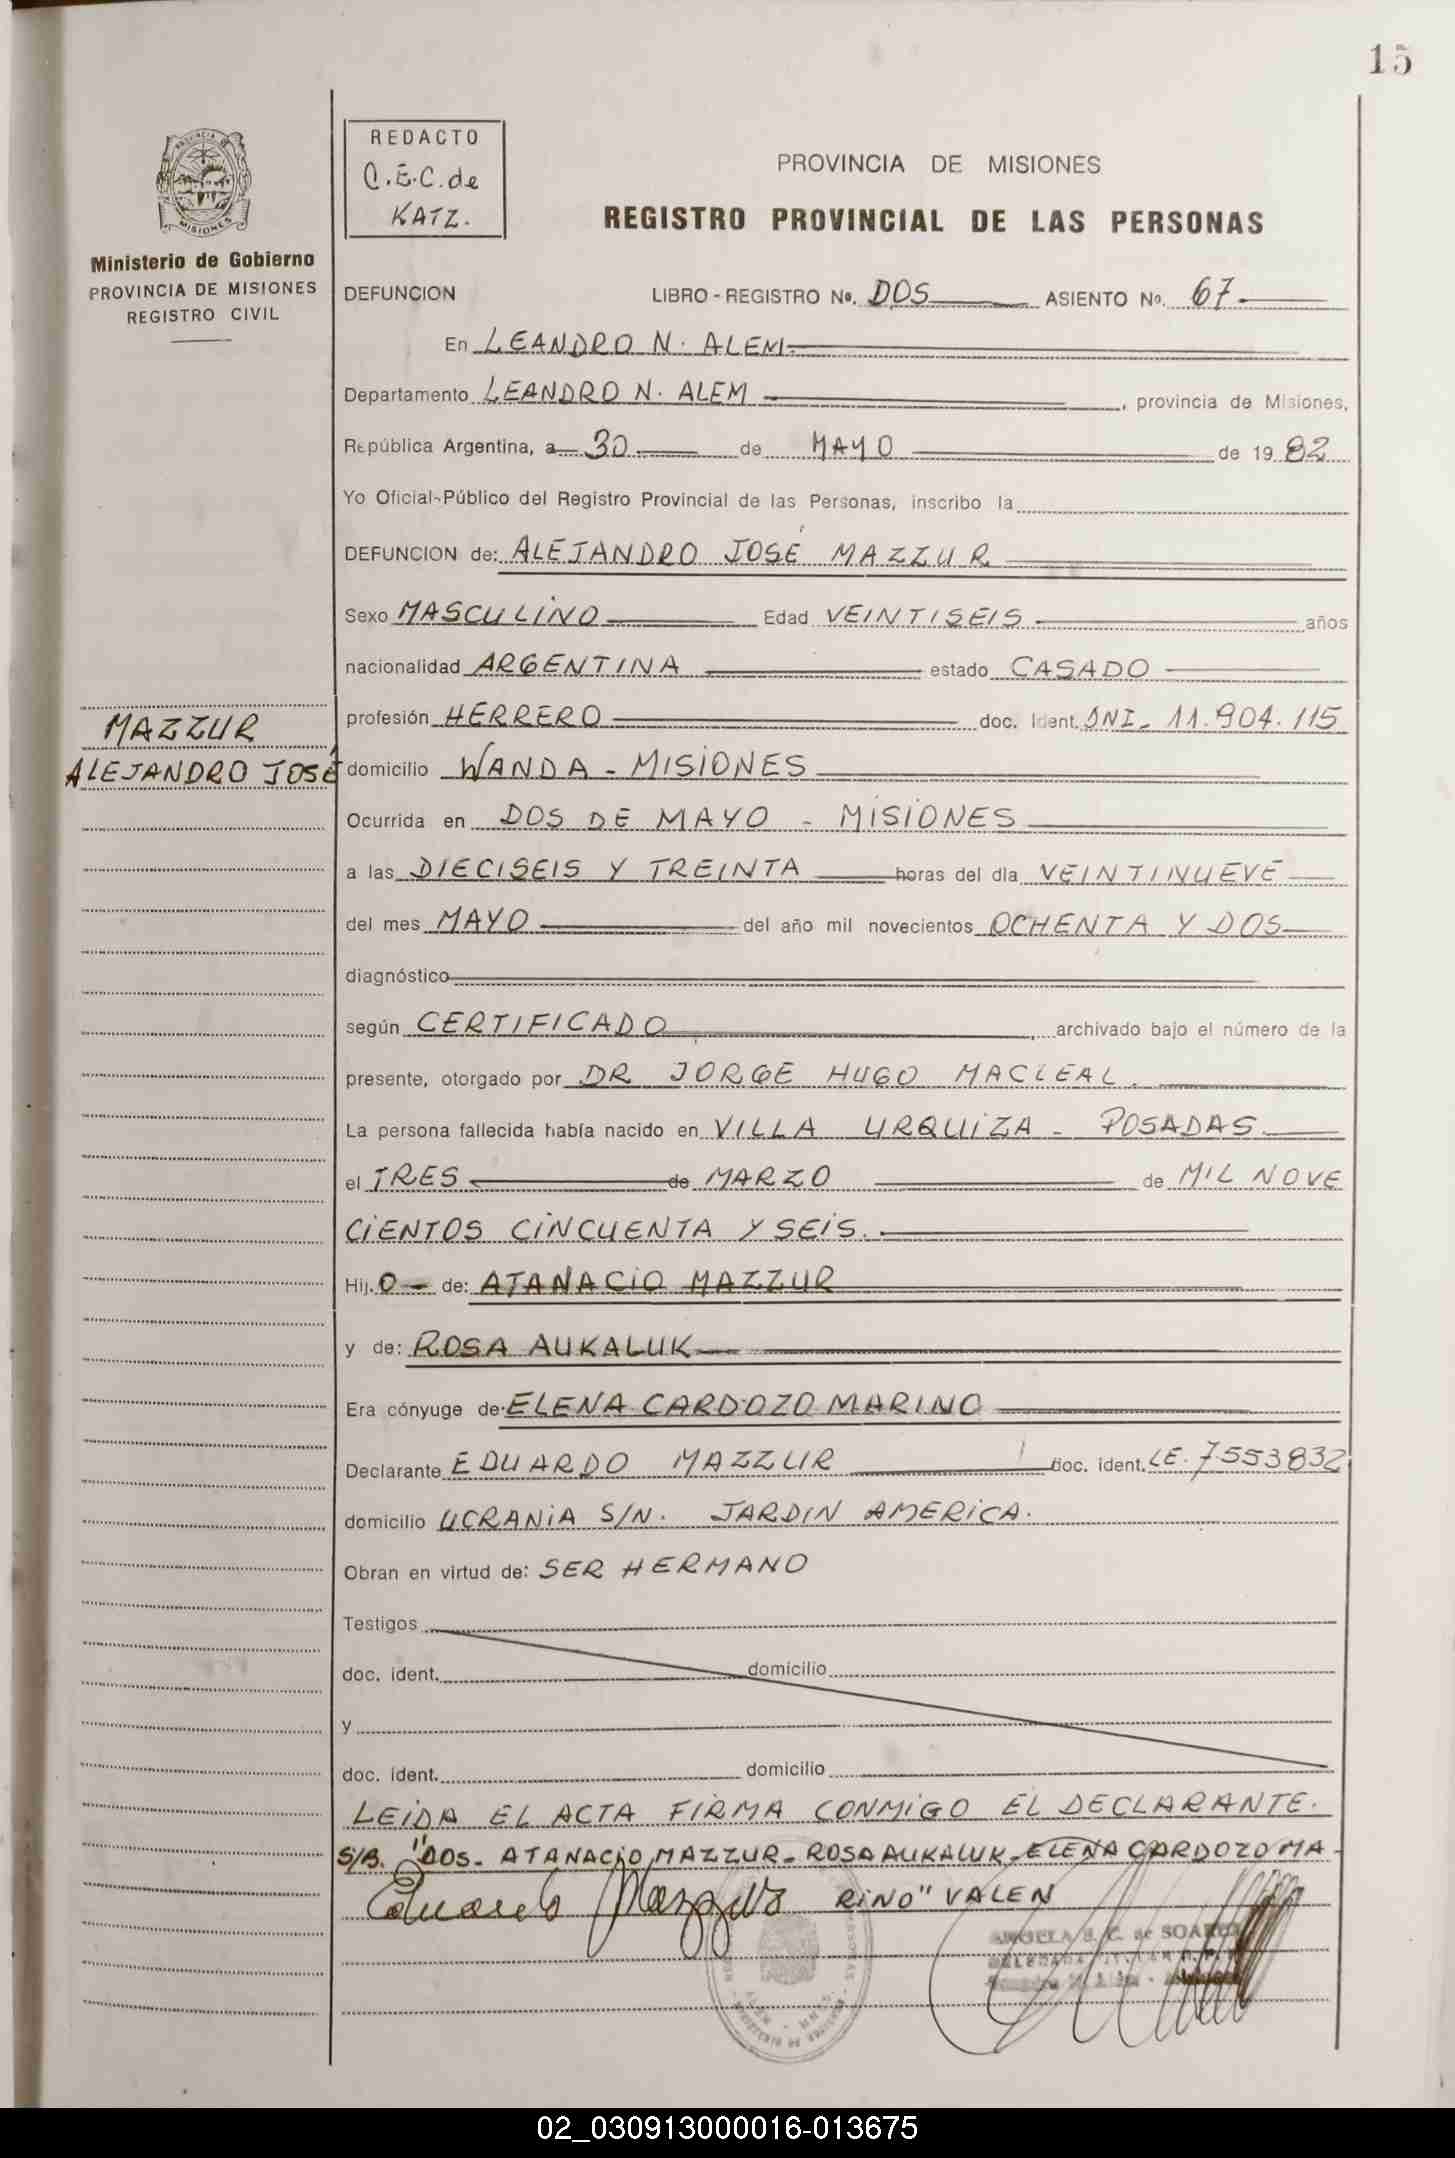 15
REDACTO
C.E.C. de
KATZ.
PROVINCIA DE MISIONES
REGISTRO PROVINCIAL DE LAS PERSONAS
Ministerio de Gobierno
PROVINCIA DE MISIONES
REGISTRO CIVIL
DEFUNCION LIBRO - REGISTRO Nº. DOS ASIENTO Nº. 67
En LEANDRO N. ALEM.
Departamento LEANDRO N. ALEM, provincia de Misiones,
República Argentina, a 30 de MAYO de 1982
Yo Oficial-Público del Registro Provincial de las Personas, inscribo la
DEFUNCION de: ALEJANDRO JOSÉ MAZZUR
Sexo MASCULINO Edad VEINTISEIS años
nacionalidad ARGENTINA estado CASADO
MAZZUR
ALEJANDRO JOSÉ
profesión HERRERO doc. Ident. DNI- 11.904.115
domicilio WANDA - MISIONES
Ocurrida en DOS DE MAYO - MISIONES
a las DIECISEIS Y TREINTA horas del día VEINTINUEVE
del mes MAYO del año mil novecientos OCHENTA Y DOS
diagnóstico
según CERTIFICADO, archivado bajo el número de la
presente, otorgado por DR JORGE HUGO MACLEAL.
La persona fallecida había nacido en VILLA URQUIZA - POSADAS
el TRES de MARZO de MIL NOVE
CIENTOS CINCUENTA Y SEIS.
Hij. O - de: ATANACIO MAZZUR
y de: ROSA AUKALUK
Era cónyuge de ELENA CARDOZO MARINO
Declarante EDUARDO MAZZUR doc. ident. LE. 7553832
domicilio UCRANIA S/N. JARDIN AMERICA.
Obran en virtud de: SER HERMANO
Testigos
doc. ident. domicilio
y
doc. ident. domicilio
LEIDA EL ACTA FIRMA CONMIGO EL DECLARANTE.
S/B. "DOS- ATANACIO MAZZUR- ROSA AUKALUK- ELENA CARDOZO MA-
RINO" VALEN
Eduardo Mazzur
C. de SOARES
02_030913000016-013675